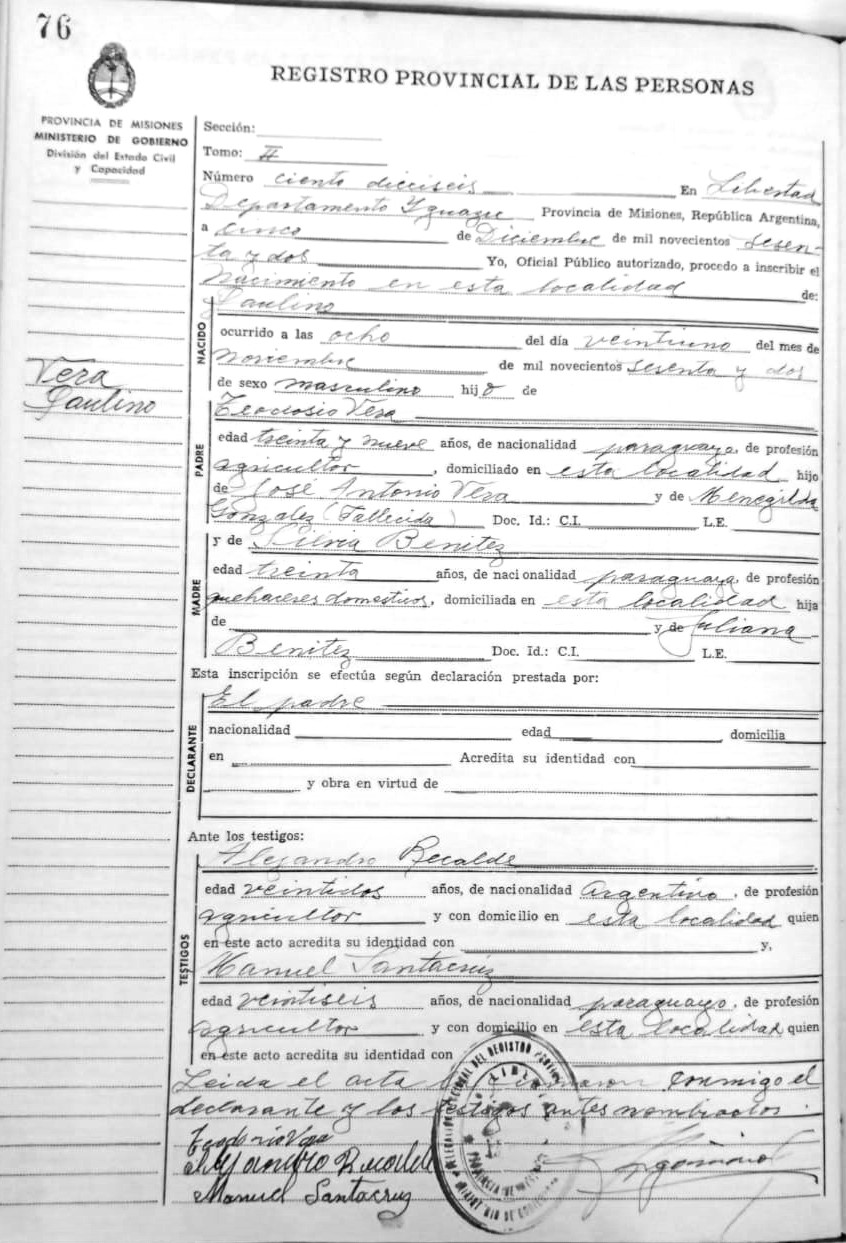 76
REGISTRO PROVINCIAL DE LAS PERSONAS
PROVINCIA DE MISIONES
MINISTERIO DE GOBIERNO
División del Estado Civil
y Capacidad
Sección:
Tomo: II
Número ciento dieciseis En Libertad
Departamento Yguazu Provincia de Misiones, República Argentina,
a cinco de Diciembre de mil novecientos sesen-
ta y dos Yo, Oficial Público autorizado, procedo a inscribir el
Nacimiento en esta localidad de:
NACIDO
Paulino
ocurrido a las ocho del día veintiuno del mes de
Noviembre de mil novecientos sesenta y dos
de sexo masculino hijo de
Vera
Paulino
PADRE
Teodosio Vera
edad treinta y nueve años, de nacionalidad paraguaya, de profesión
agricultor, domiciliado en esta localidad hijo
de José Antonio Vera y de Menegilda
Gonzalez (Fallecida) Doc. Id.: C.I. L.E.
MADRE
y de Silvia Benitez
edad treinta años, de nacionalidad paraguaya, de profesión
quehaceres domesticos, domiciliada en esta localidad hija
de y de Juliana
Benitez Doc. Id.: C.I. L.E.
Esta inscripción se efectúa según declaración prestada por:
DECLARANTE
El padre
nacionalidad edad domicilia
en Acredita su identidad con
y obra en virtud de
Ante los testigos:
TESTIGOS
Alejandro Recalde
edad veintidos años, de nacionalidad Argentino, de profesión
agricultor y con domicilio en esta localidad quien
en este acto acredita su identidad con y,
Manuel Santacruz
edad veintiseis años, de nacionalidad paraguayo, de profesión
agricultor y con domicilio en esta localidad quien
en este acto acredita su identidad con
Leida el acta la firmaron conmigo el
declarante y los testigos antes nombrados.
Teodosio Vera
Alejandro Recalde
Manuel Santacruz